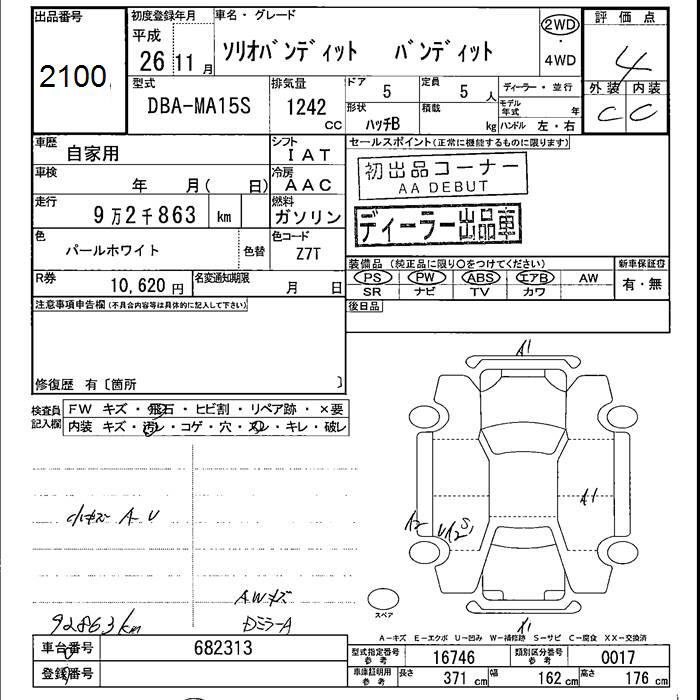 出品番号 初度登録年月 車名・グレード 評価点
2100
平成
26 11 月
ソリオバンディット バンディット
2WD
・
4WD
4
型式 排気量 ドア 定員 ディーラー・並行 外装 内装
DBA-MA15S 1242 cc 5 5 人
モデル年式 年
C C
形状 積載
ハッチB kg ハンドル 左・右
車歴 自家用 シフト IAT
セールスポイント(正常に機能するものに限ります)
車検 年 月( 日) 冷房 AAC
初出品コーナー
AA DEBUT
走行 9万2千863 km 燃料 ガソリン
ディーラー出品車
色 パールホワイト 色替 色コード Z7T
装備品(純正品に限り○をつけてください) 新車保証書
PS PW ABS エアB AW 有・無
SR ナビ TV カワ
R券 10,620 円 名変通知期限 月 日
後日品
注意事項申告欄(不具合内容等は具体的に記入して下さい)
修復歴 有〔箇所 〕
検査員記入欄
FW キズ・飛石・ヒビ割・リペア跡・×要
内装 キズ・汚レ・コゲ・穴・スレ・キレ・破レ
A1
A1
A2
小キズ A-U
AWキズ
92863km
DミラーA
スペア
A1
A-キズ E-エクボ U-凹み W-補修跡 S-サビ C-腐食 XX-交換済
車台番号 682313
型式指定番号参考 16746 類別区分番号参考 0017
登録番号
車庫証明用参考 長さ 371 cm 幅 162 cm 高さ 176 cm